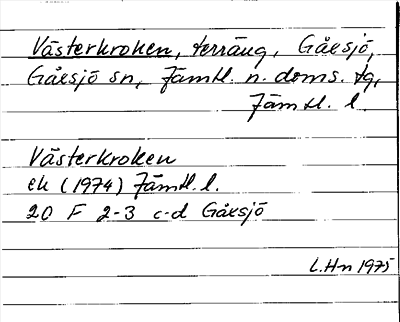 Västerkroken, terräng, Gåxsjö,
Gåxsjö sn, Jämtl. n. doms. tg,
Jämtl. l.
Västerkroken
ek (1974) Jämtl. l.
20 F 2-3 c-d Gåxsjö
L.Hn 1975